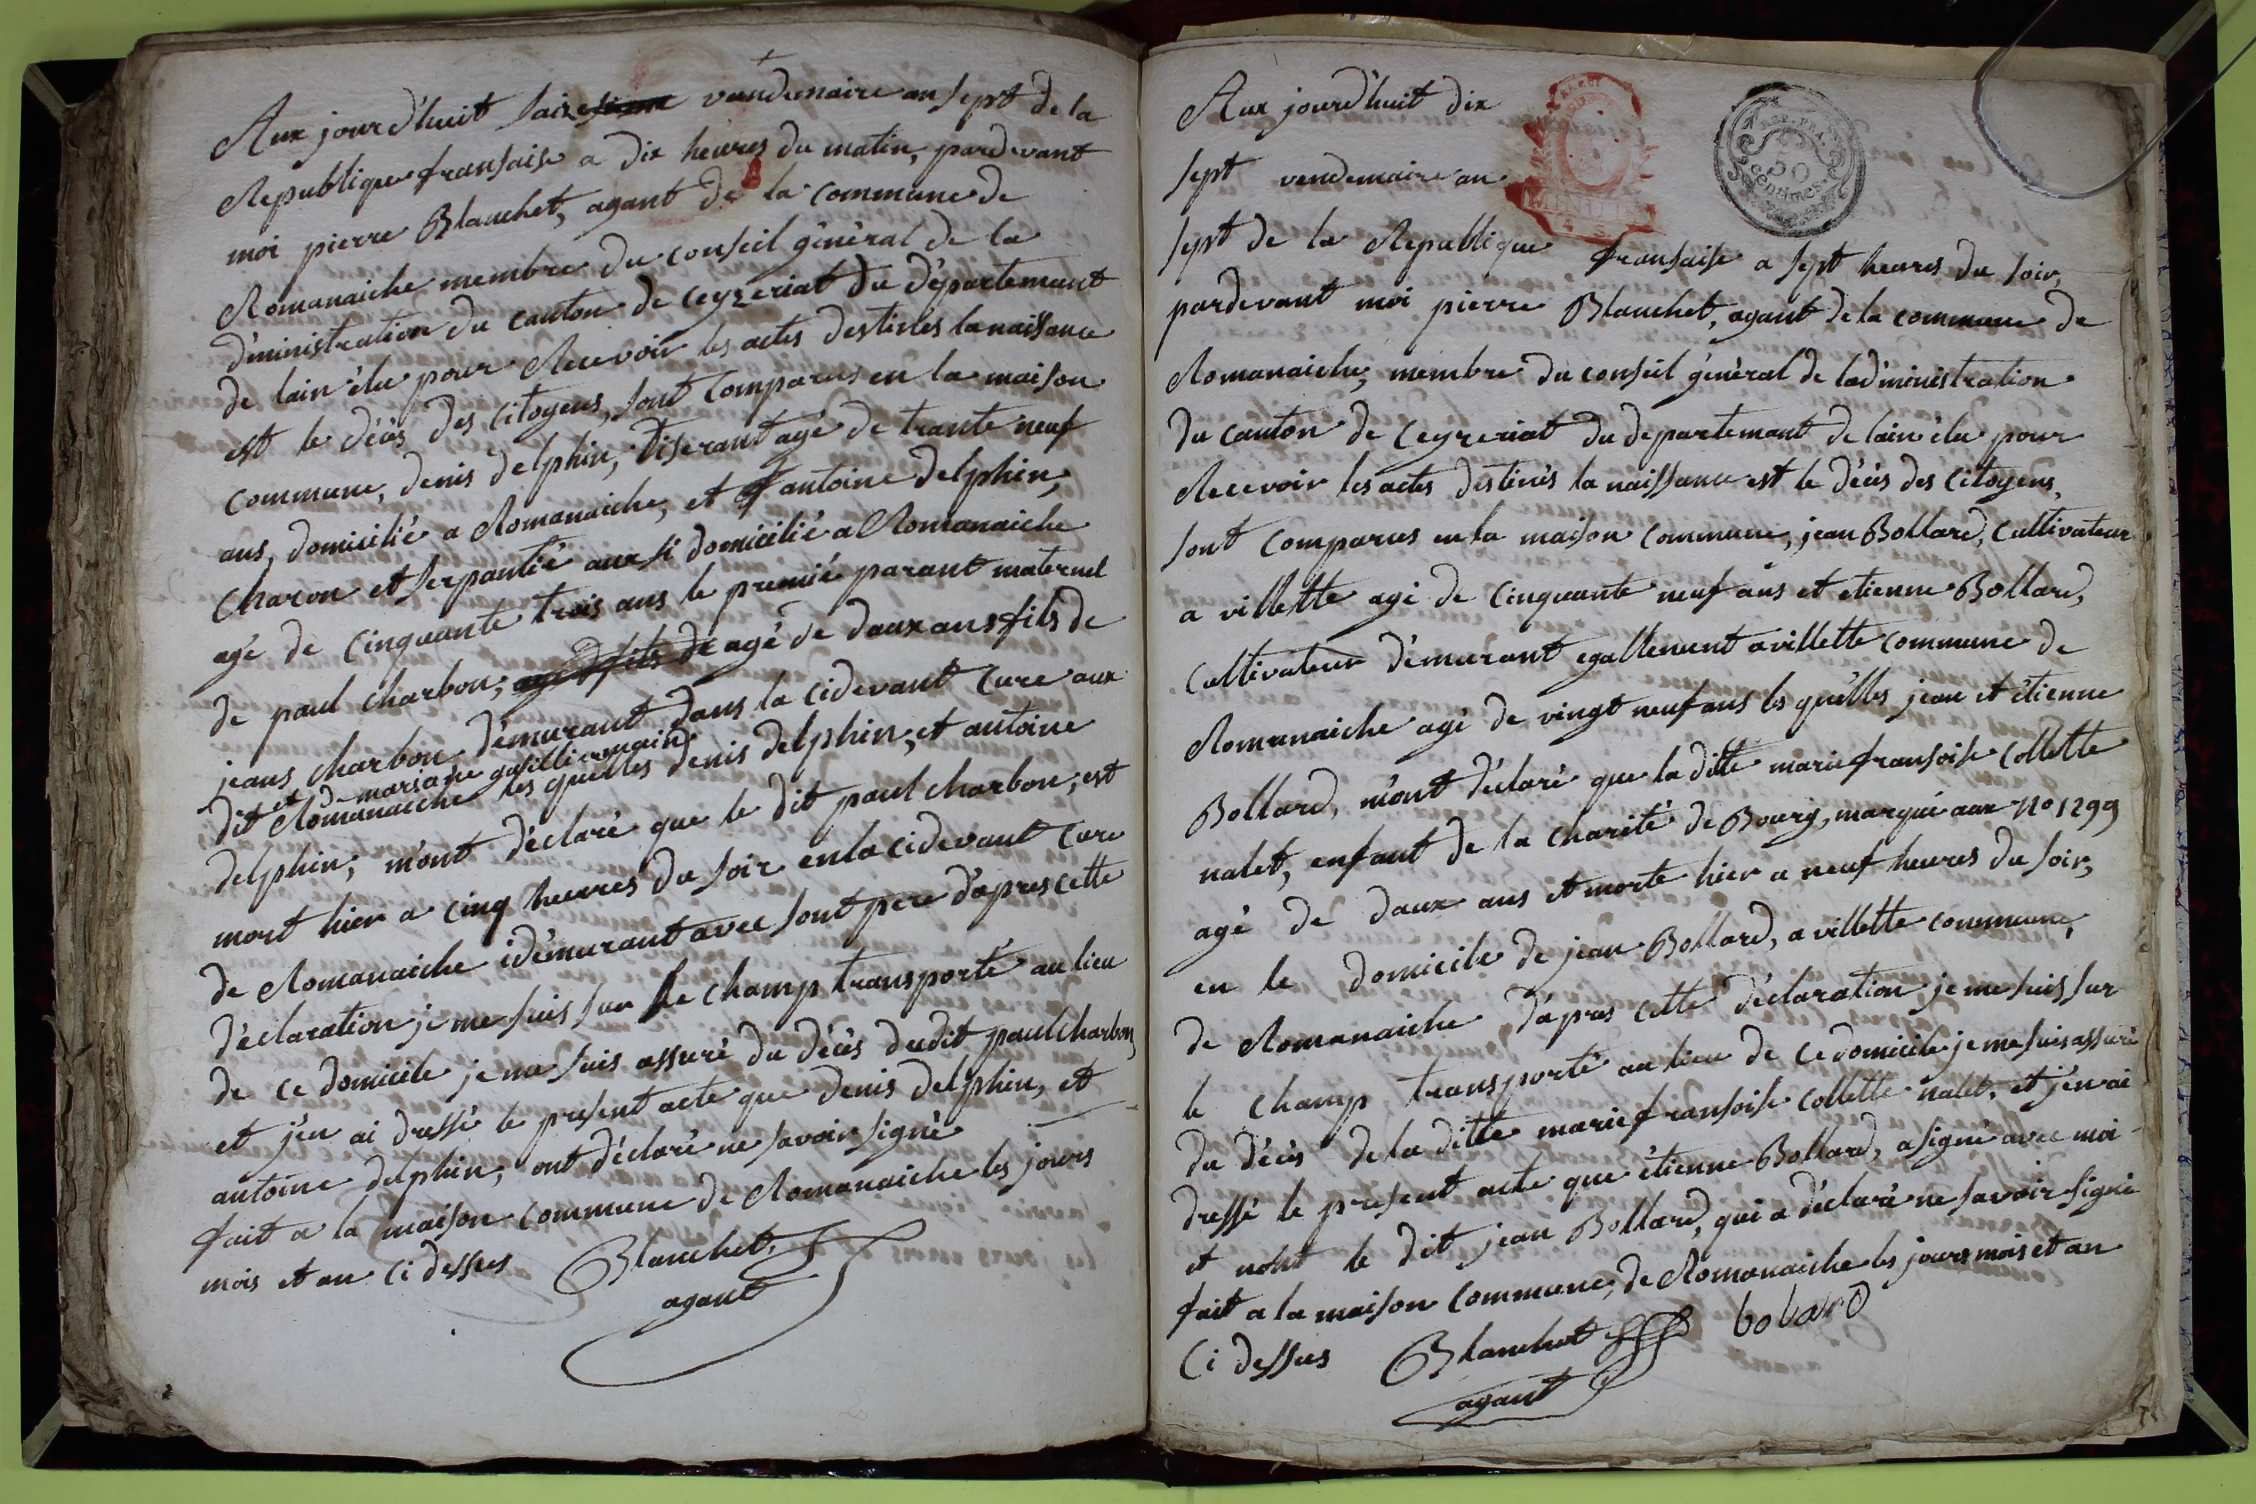 Aux jourd'huit saize vendemaire an sept de la
Republique fransaise a dix heures du matin, pardevant
moi pierre Blanchet, agant de la commune de
Romanaiche membre du conseil général de la
d'ministration du canton de Ceyzeriat du département
de lain élu pour Recevoir les actes destinés la naissance
est le décès des Citoyens, sont Comparus en la maison
commune, denis delphin, tiserant agé de trante neuf
ans, domicilié a Romanaiche, et antoine delphin,
Charon et serpantié aussi domicilié a Romanaiche
agé de Cinquante trois ans le premié parant maternel
de paul charbon, agé de daux ans fils de
jeans charbon démurant dans la cidevant Cure aux
et mariane
dit Romanaiche les quelles denis delphin, et antoine
delphin, m'ont déclaré que le dit paul charbon, est
mort hier a cinq heures du soir en la cidevant Cure
de Romanaiche idémurant avec sont père d'apres cette
déclaration je me suis sur le champ transporté au lieu
de ce domicile je me suis assuré du décès dudit paul Charbon,
et j'en ai dressé le present acte que denis delphin, et
antoine delphin, ont déclaré ne savoir signé
fait a la maison commune de Romanaiche les jours
mois et an ci dessus Blanchet,
agant
Aux jourd'huit dix
sept vendemaire an
sept de la Republique fransaise a sept heures du soir,
pardevant moi pierre Blanchet, agant de la commune de
Romanaiche, membre du conseil général de ladministration
du canton de Ceyzeriat du departemant de lain élu pour
Recevoir les actes destinés la naissance est le décès des Citoyens,
sont Comparus en la maison commune, jean Bollard, Cultivateur
a villette agé de Cinquante neuf ans et etienne Bollard,
Cultivateur démurant egallement a villette commune de
Romanaiche agé de vingt neuf ans les quelles jean et étienne
Bollard, m'ont déclaré que la ditte marie fransoise Collette
nalet, enfant de la charité de Bourg, marqué aux No 1299
agé de daux ans et morte hier a neuf heures du soir,
en le domicile de jean Bollard, a villette commune,
de Romanaiche d'apres cette déclaration je me suis sur
le champ transporté au lieu de ce domicile je me suis assuré
du décès de la ditte marie fransoise Collette nalet, et j'en ai
dressé le present acte que étienne Bollard, a signé avec moi
et nont le dit jean Bollard, qui a déclaré ne savoir signé
fait a la maison Commune, de Romanaiche les jours mois et an
Ci dessus Blanchet bolard
agant
REP. FRA.
50
centimes